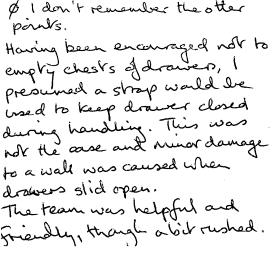 ø I don't remember the other
points.
Having been encouraged not to
empty chests of drawers, I
presumed a strap would be
used to keep drawer closed
during handling. This was
not the case and minor damage
to a wall was caused when
drawers slid open.
The team was helpful and
friendly, though a bit rushed.